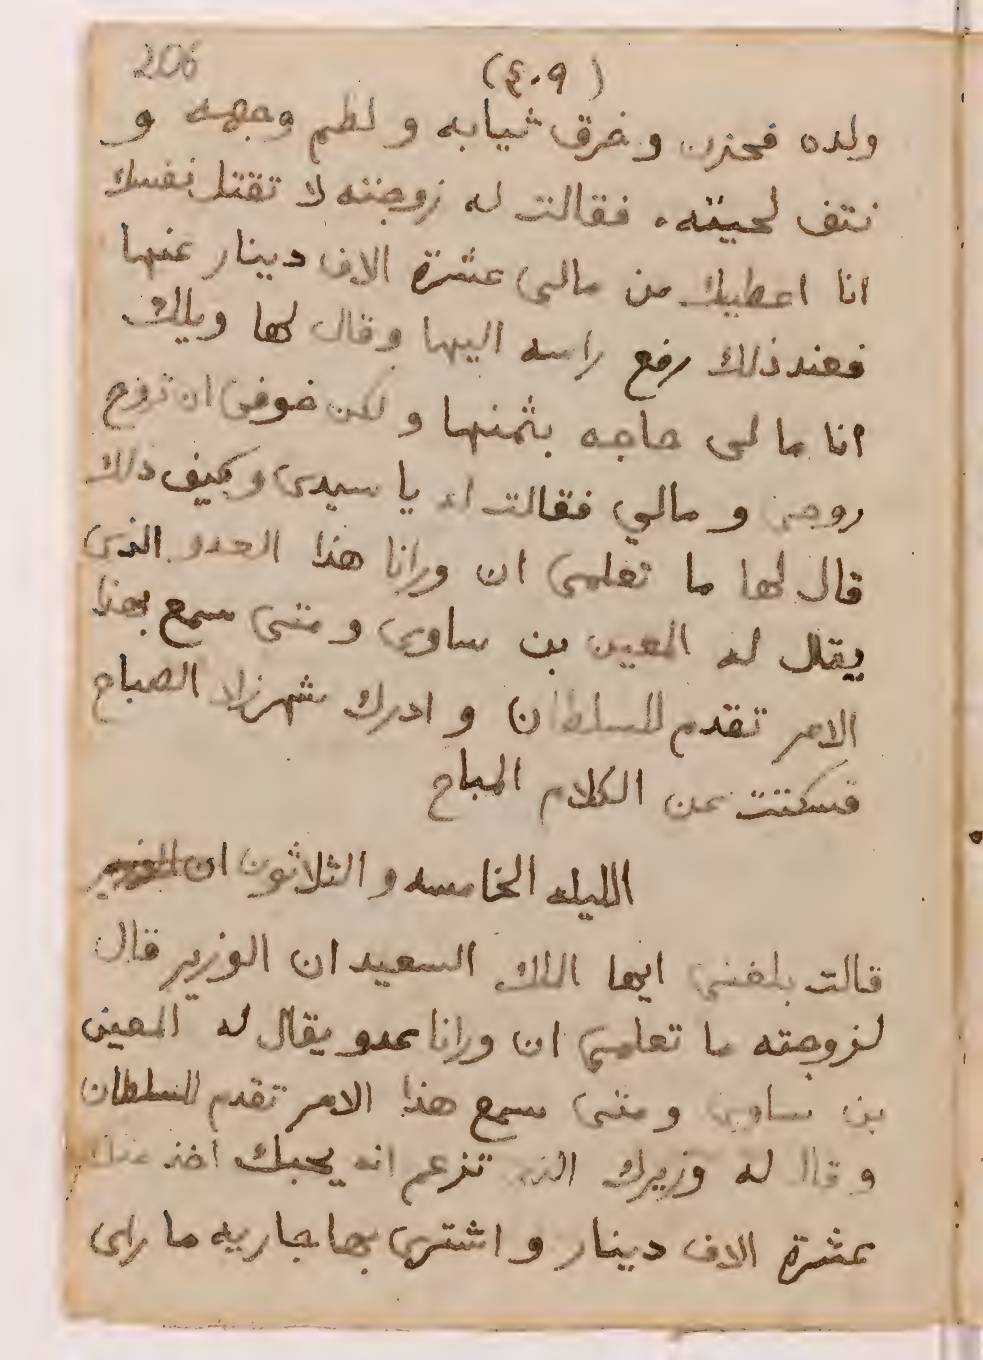 206
(٤٠٩)
ولده فحزن و خرق ثيابه و لطم وجهه و
نتف لحيته . فقالت له زوجته لا تقتل نفسك
انا اعطيك من مالى عشرة الاف دينار عنها
فعند ذلك رفع راسه اليها وقال لها ويلك
انا ما لى حاجه بثمنها و لكن خوفى ان تروح
روحى و مالي فقالت له يا سيدى وكيف ذلك
قال لها ما تعلمى ان ورانا هذا العدو الذى
يقال له المعين بن ساوى و متى سمع بهذا
الامر تقدم للسلطان و ادرك شهرزاد الصباح
فسكتت عن الكلام المباح
الليله الخامسه و الثلاثون ان الوزير
قالت بلغنى ايها الملك السعيد ان الوزير قال
لزوجته ما تعلمى ان ورانا عدو يقال له المعين
بن ساوى و متى سمع هذا الامر تقدم للسلطان
و قال له وزيرك الذى تزعم انه يحبك اخذ منك
عشرة الاف دينار و اشترى بها جاريه ما راى